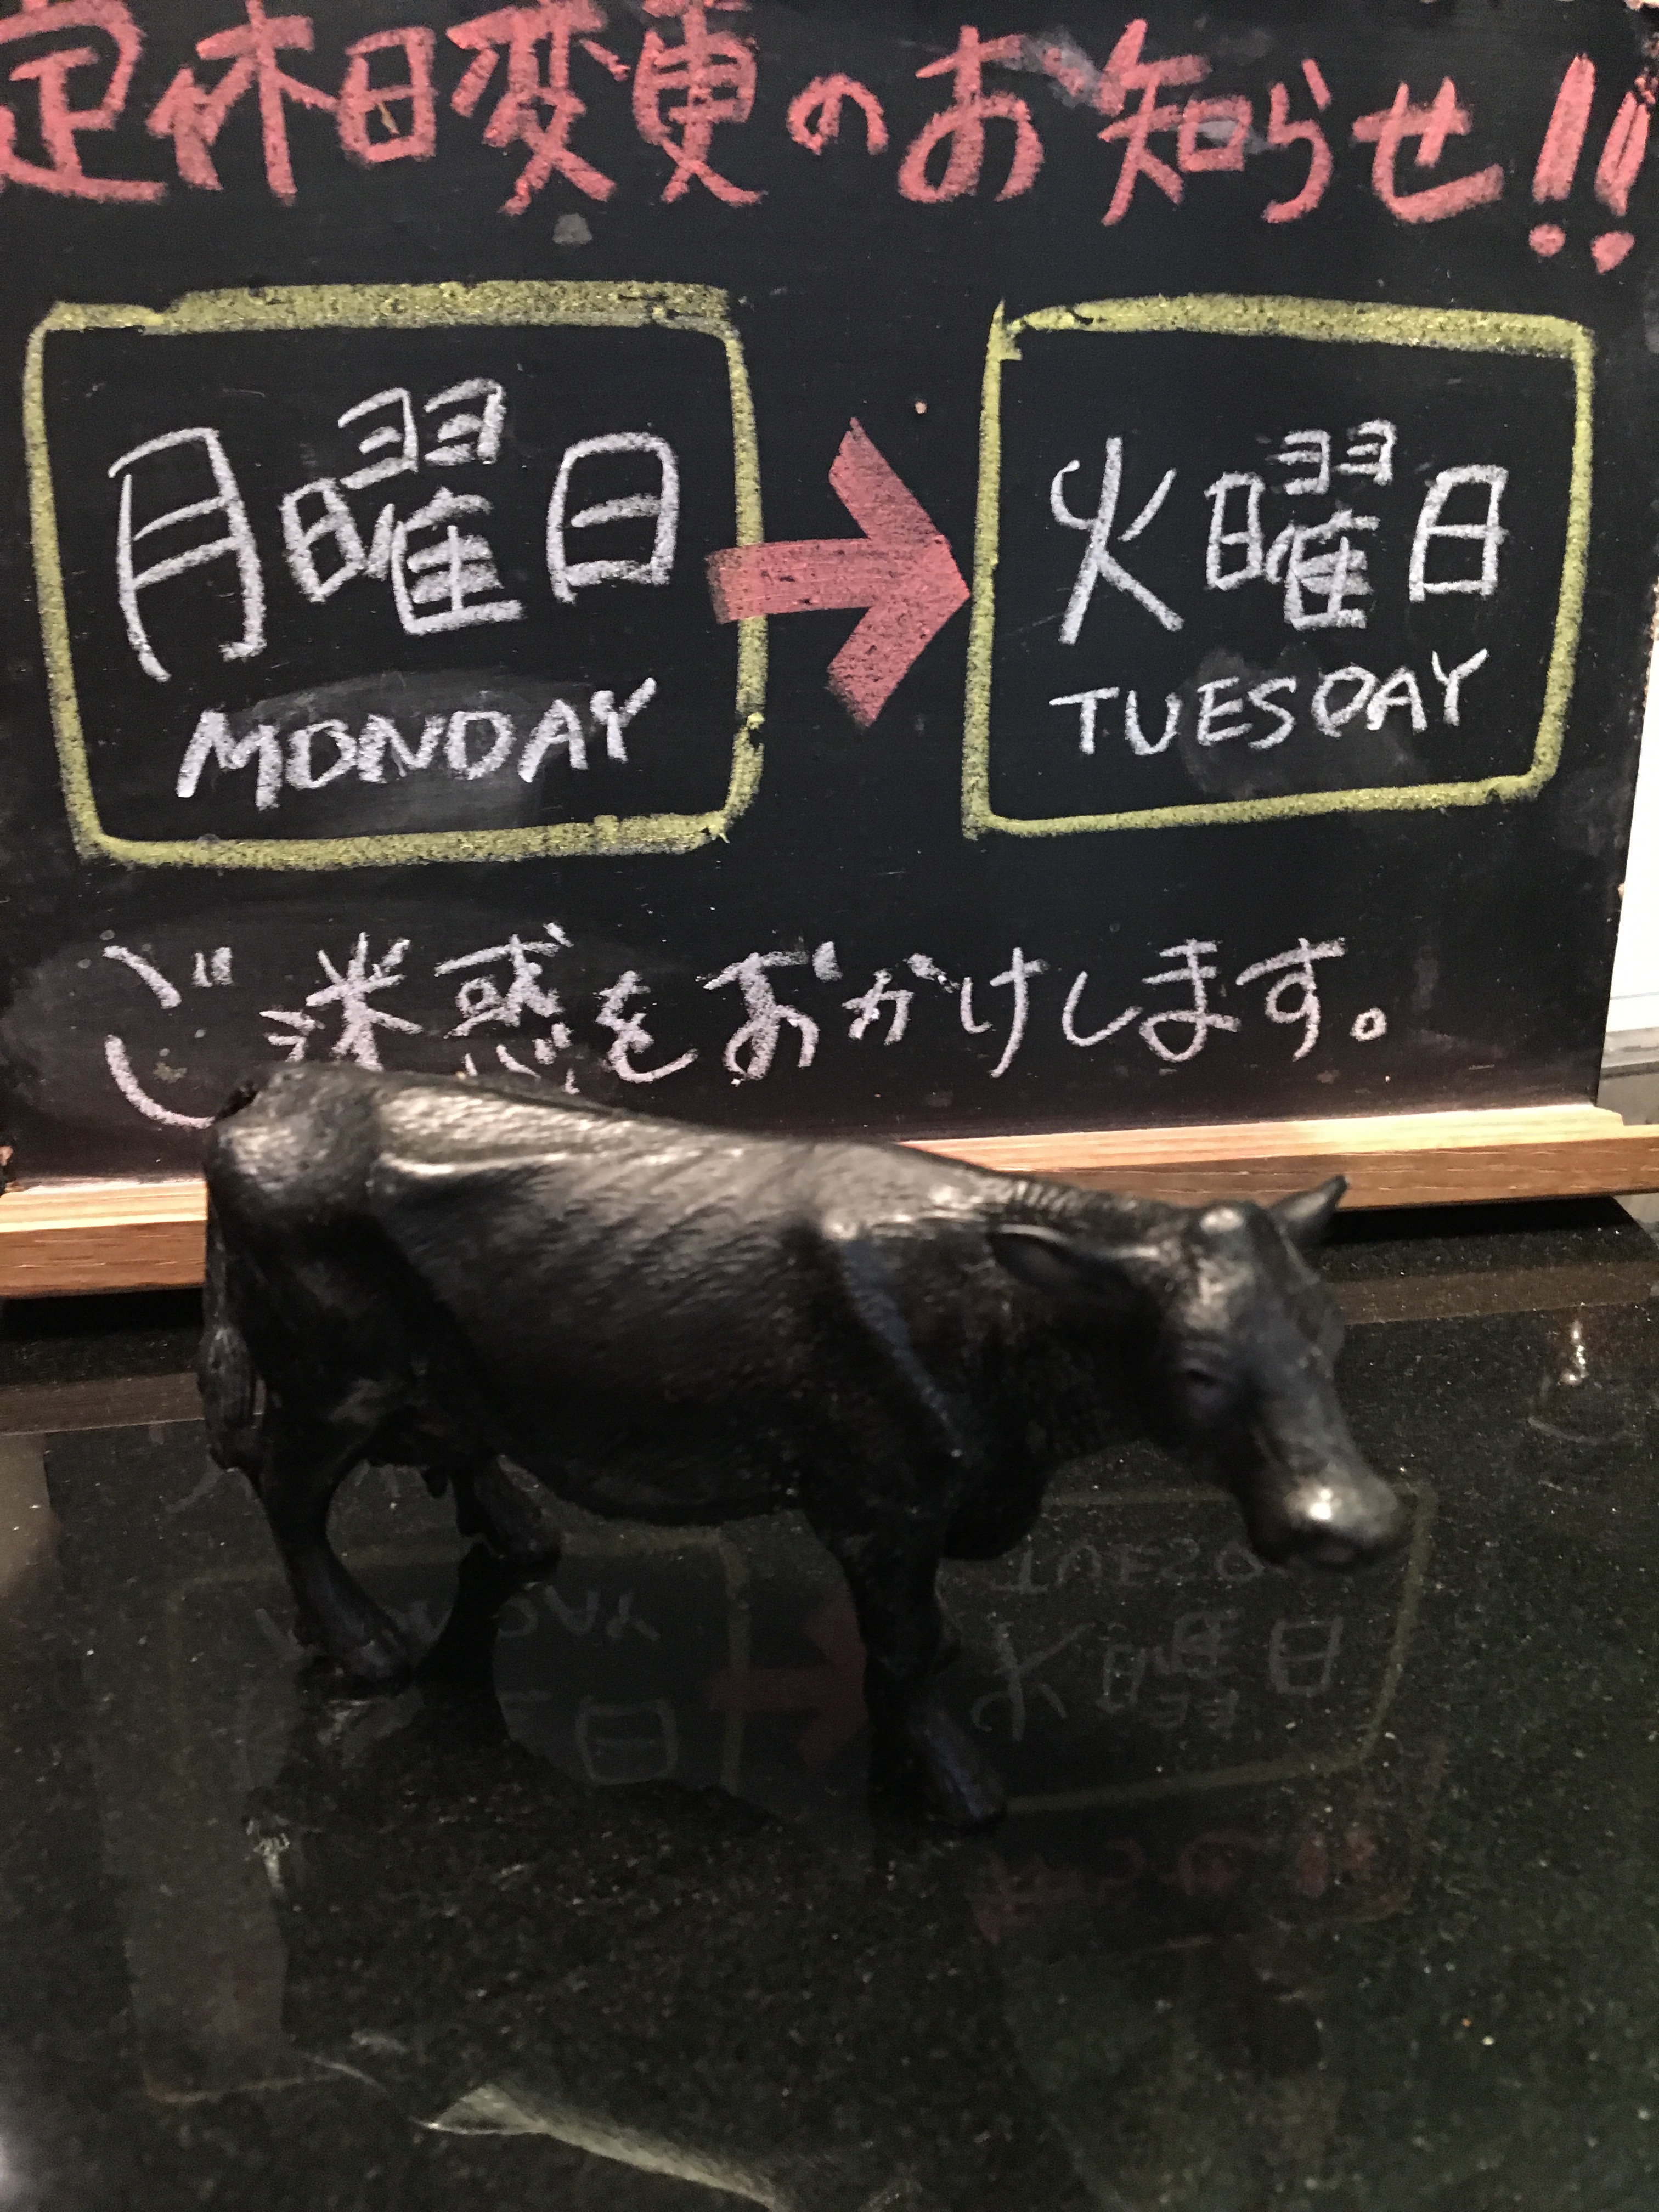 定休日変更のお知らせ!!
月曜日 → 火曜日
MONDAY TUESDAY
ご迷惑をおかけします。